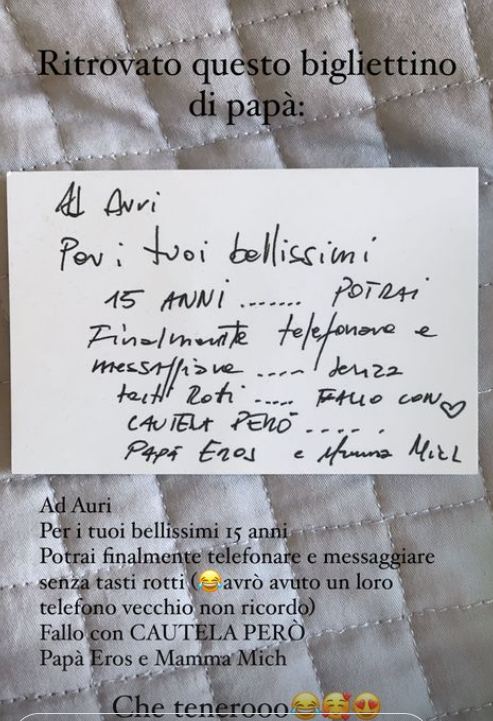 Ritrovato questo bigliettino
di papà:
Ad Auri
Per i tuoi bellissimi
15 ANNI ....... POTRAI
Finalmente telefonare e
messaggiare ..... senza
tasti Roti ..... FALLO CON
CAUTELA PERÒ .....
PAPÀ EROS e Mamma MICH
Ad Auri
Per i tuoi bellissimi 15 anni
Potrai finalmente telefonare e messaggiare
senza tasti rotti (😂avrò avuto un loro
telefono vecchio non ricordo)
Fallo con CAUTELA PERÒ
Papà Eros e Mamma Mich
Che tenerooo😂🥰😍